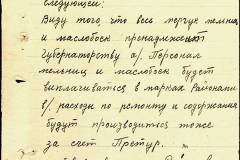 следующее:
Виду того, что весь порчук мелниц
и маслобоек пренадлежит
губернаторству а/. Персонал
мельниц и маслобоек будет
виплачиватся в марках Районами
б/ расходы по ремонту и содержания
будут производится тоже
за счет Претур.